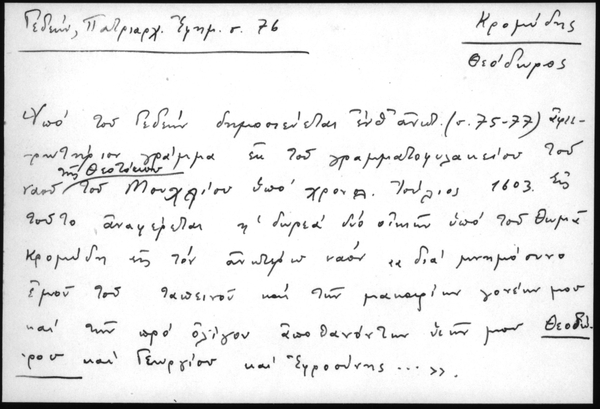 Γεδεών, Πατριαρχ. Ἐφημ. σ. 76
Κρομύδης
Θεόδωρος
Ὑπό τοῦ Γεδεών δημοσιεύεται ἐνθ' ἀνωτ. (σ. 75-77) ἀφιε-
ρωτήριον γράμμα ἐκ τοῦ γραμματοφυλακείου τοῦ
τῆς Θεοτόκου
ναοῦ τοῦ Μουχλίου ὑπό χρον. Ἰούλιος 1603. Εἰς
τοῦτο ἀναφέρεται ἡ δωρεά δύο οἰκιῶν ὑπό τοῦ Θωμᾶ
Κρομύδη εἰς τόν ἀνωτέρω ναόν «διά μνημόσυνο
ἐμοῦ τοῦ ταπεινοῦ καί τῶν μακαρίων γονέων μου
καί τῶν πρό ὀλίγου ἀποθανόντων υἱῶν μου Θεοδώ-
ρου καί Γεωργίου καί Εὐφροσύνης ... ».